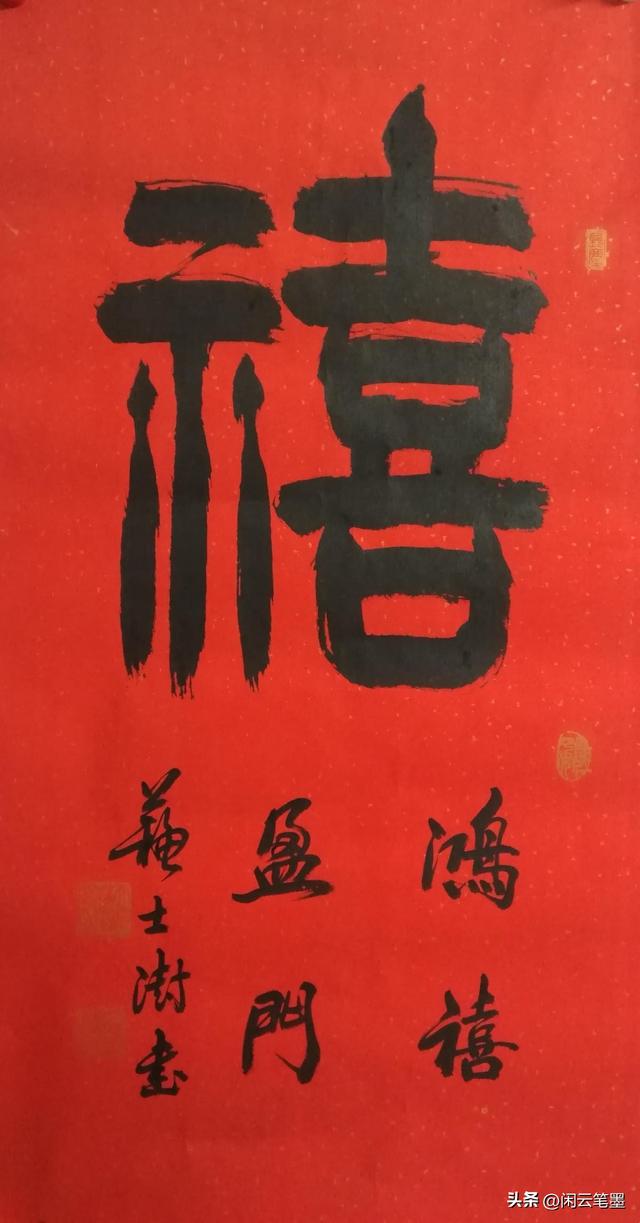 禧
鸿禧
盈門
蘇士澍書
头条 @闲云笔墨